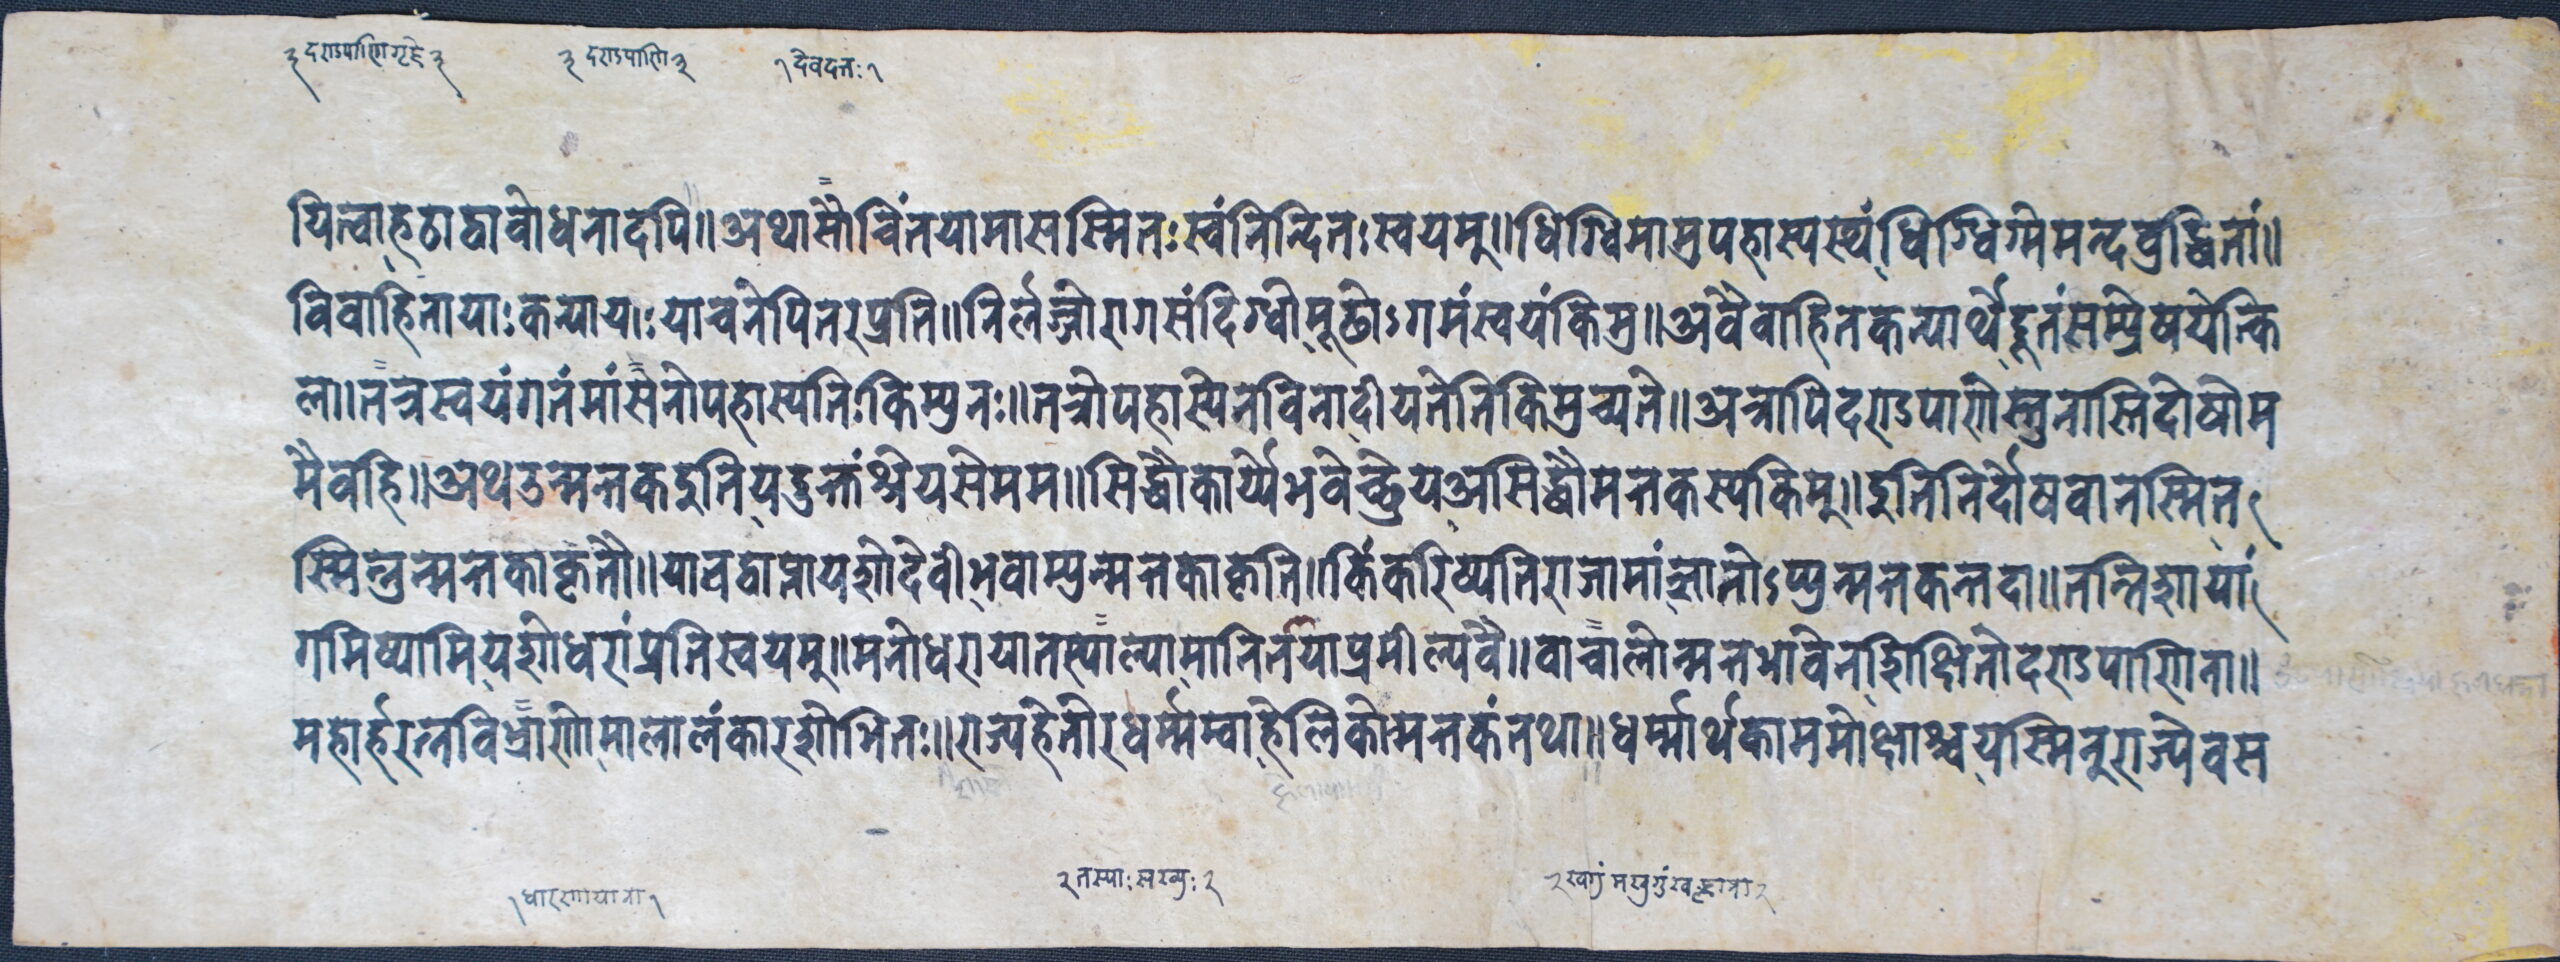 ३ दण्डपाणिगृहे ३ ३ दण्डपाणि ३ १ देवदत्तः १
यित्वाहठाद्वाबोधनादपि॥अथासौचिंतयामासस्मितःस्वंनिन्दितःस्वयम्॥धिग्धिमामुपहास्यस्थंधिग्धिग्मेमन्दबुद्धितां॥
विवाहितायाःकन्यायाःयाचनेपितरंप्रति॥निर्लज्जोरागसंदिग्धोमूढोऽगमंस्वयंकिमु॥अवैवाहितकन्यार्थेदूतंसम्प्रेषयेत्कि
ल॥तत्रस्वयंगतंमांसनोपहास्यतिकिम्पुनः॥तत्रोपहास्येनविनादीयतेतिकिमुच्यते॥अत्रापिदण्डपाणेस्तुनास्तिदोषोम
मैवहि॥अथउन्मत्तकदुतियदुक्तंश्रेयसेमम॥सिद्धौकार्य्येभवेच्छ्रेयअसिद्धौमत्तकस्यकिम्॥दुतिनिर्दोषवानस्मिन्
स्मिन्नुन्मत्तकाकृतौ॥यावद्वाप्नोयशोदेवीभवाम्युन्मत्तकाकृति॥किंकरिष्यतिराजामांज्ञातोऽप्युन्मत्तकन्तदा॥तन्निशायां
गमिष्यामियशोधरांप्रतिस्वयम्॥मनोधरायातस्याल्यामानिर्तयाप्रमील्यवै॥वाचालोन्मत्तभावेनशिक्षितोदण्डपाणिना॥
महार्हरत्नविभ्राणोमालालंकारशोभितः॥राज्यहेतोरधर्म्मम्वाहेलिकोन्मत्तकंतथा॥धर्म्मार्थकाममोक्षाश्चयस्मिनुराज्येवस
१ धारणायाना १ २ तस्याः सख्युः २